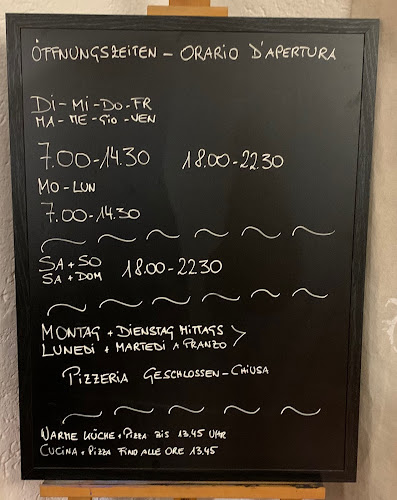 ÖFFNUNGSZEITEN - ORARIO D'APERTURA
DI - MI - DO - FR
MA - ME - GIO - VEN
7.00-14.30 18.00-22.30
MO - LUN
7.00-14.30
SA + SO
SA + DOM 18.00-22.30
MONTAG + DIENSTAG MITTAGS
LUNEDI + MARTEDI A PRANZO
PIZZERIA GESCHLOSSEN - CHIUSA
WARME KÜCHE + PIZZA BIS 13.45 UHR
CUCINA + PIZZA FINO ALLE ORE 13.45